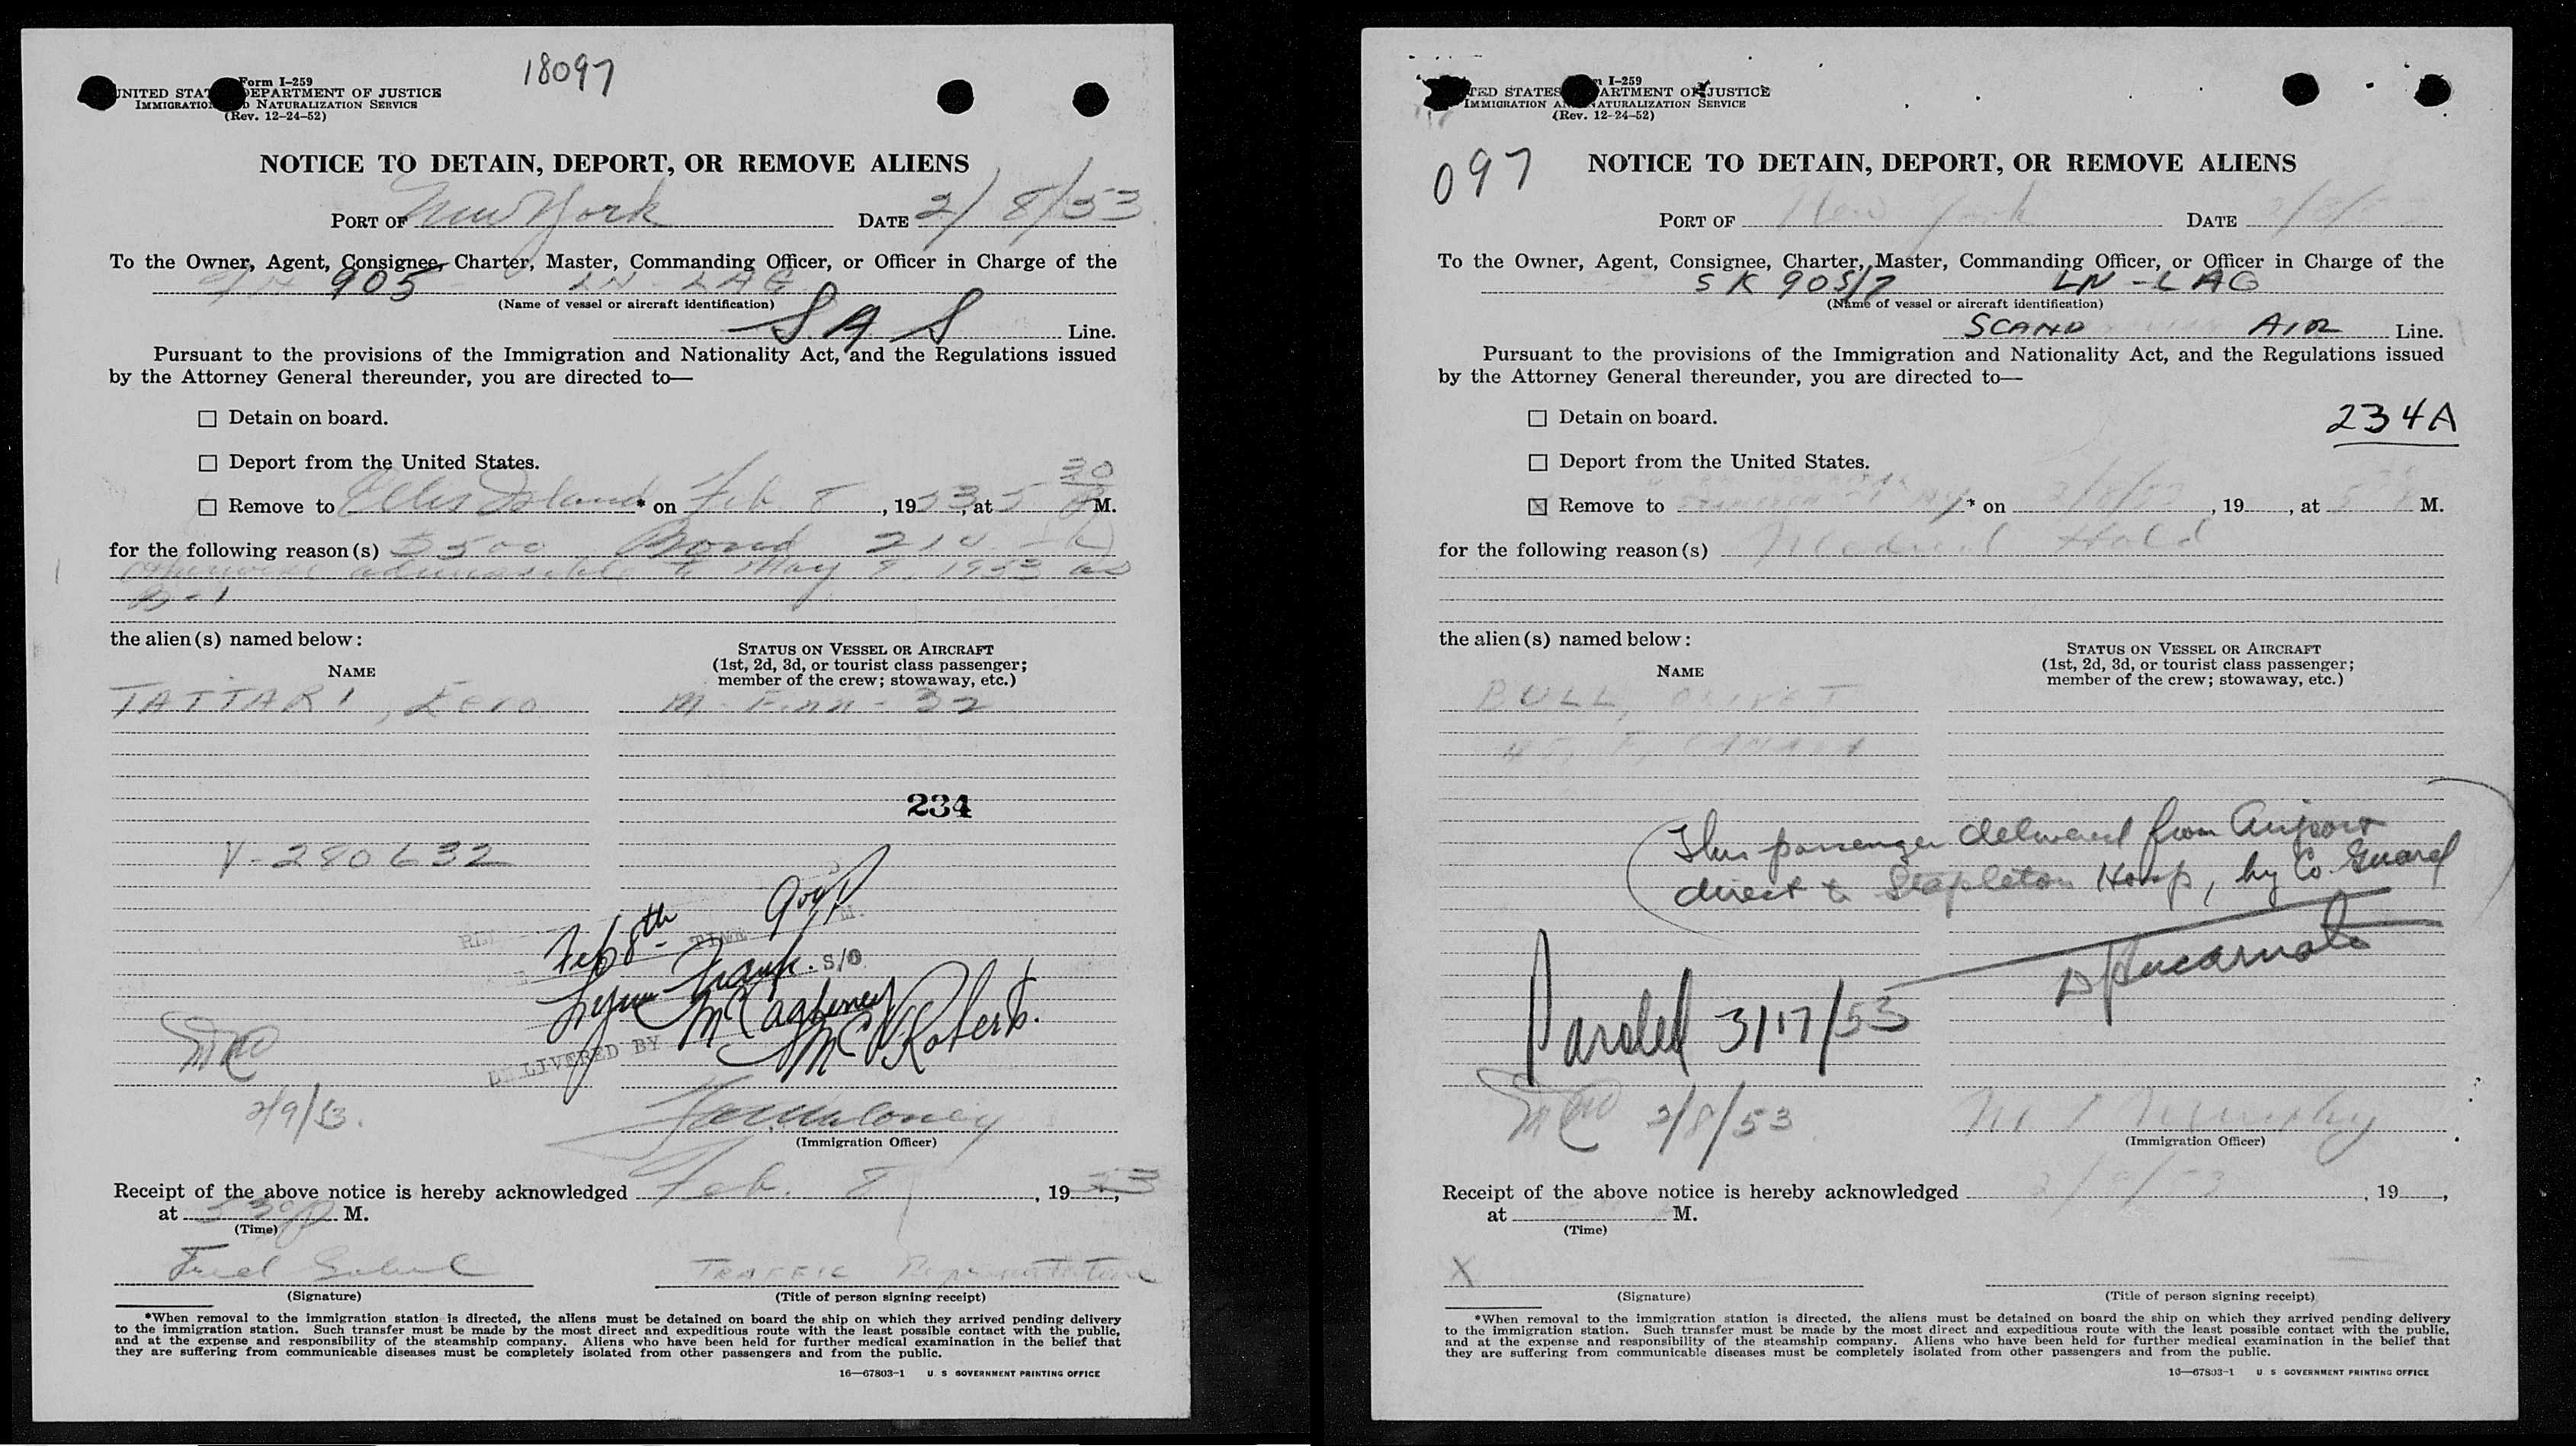 18097
Form I-259
UNITED STATES DEPARTMENT OF JUSTICE
IMMIGRATION AND NATURALIZATION SERVICE
(Rev. 12-24-52)
NOTICE TO DETAIN, DEPORT, OR REMOVE ALIENS
PORT OF New York DATE 2/8/53
To the Owner, Agent, Consignee, Charter, Master, Commanding Officer, or Officer in Charge of the
905 LN-LAG
(Name of vessel or aircraft identification)
SAS Line.
Pursuant to the provisions of the Immigration and Nationality Act, and the Regulations issued
by the Attorney General thereunder, you are directed to—
☐ Detain on board.
☐ Deport from the United States.
☐ Remove to Ellis Island * on Feb. 8, 1953, at 5 30 P M.
for the following reason(s) $500 Bond
otherwise admissible to May 9, 1953 as
B-1
the alien(s) named below:
NAME
STATUS ON VESSEL OR AIRCRAFT
(1st, 2d, 3d, or tourist class passenger;
member of the crew; stowaway, etc.)
TATTARI, Eero M - Finn - 32
234
V-280632
Feb 8th TIME
S/O
DELIVERED BY
2/9/53.
(Immigration Officer)
Receipt of the above notice is hereby acknowledged Feb. 8, 1953,
at 530P M.
(Time)
Fred
TRAFFIC Representative
(Signature)
(Title of person signing receipt)
*When removal to the immigration station is directed, the aliens must be detained on board the ship on which they arrived pending delivery
to the immigration station. Such transfer must be made by the most direct and expeditious route with the least possible contact with the public,
and at the expense and responsibility of the steamship company. Aliens who have been held for further medical examination in the belief that
they are suffering from communicable diseases must be completely isolated from other passengers and from the public.
16—67803-1 U. S GOVERNMENT PRINTING OFFICE
I-259
TED STATES ARTMENT OF JUSTICE
IMMIGRATION A NATURALIZATION SERVICE
(Rev. 12-24-52)
097
NOTICE TO DETAIN, DEPORT, OR REMOVE ALIENS
PORT OF New York DATE 2/8/53
To the Owner, Agent, Consignee, Charter, Master, Commanding Officer, or Officer in Charge of the
SK 905/7 LN-LAG
(Name of vessel or aircraft identification)
SCAND AIR Line.
Pursuant to the provisions of the Immigration and Nationality Act, and the Regulations issued
by the Attorney General thereunder, you are directed to—
☐ Detain on board.
234A
☐ Deport from the United States.
☒ Remove to * on 2/8/53, 19 , at M.
for the following reason(s) Medical Hold
the alien(s) named below:
NAME
STATUS ON VESSEL OR AIRCRAFT
(1st, 2d, 3d, or tourist class passenger;
member of the crew; stowaway, etc.)
BULL,
CANADA
This passenger delivered from Airport
direct to Stapleton Hosp, by Co. Guard
Paroled 3/17/53
2/8/53
(Immigration Officer)
Receipt of the above notice is hereby acknowledged 2/8/53, 19 ,
at M.
(Time)
X
(Signature)
(Title of person signing receipt)
*When removal to the immigration station is directed, the aliens must be detained on board the ship on which they arrived pending delivery
to the immigration station. Such transfer must be made by the most direct and expeditious route with the least possible contact with the public,
and at the expense and responsibility of the steamship company. Aliens who have been held for further medical examination in the belief that
they are suffering from communicable diseases must be completely isolated from other passengers and from the public.
16—67803-1 U. S GOVERNMENT PRINTING OFFICE